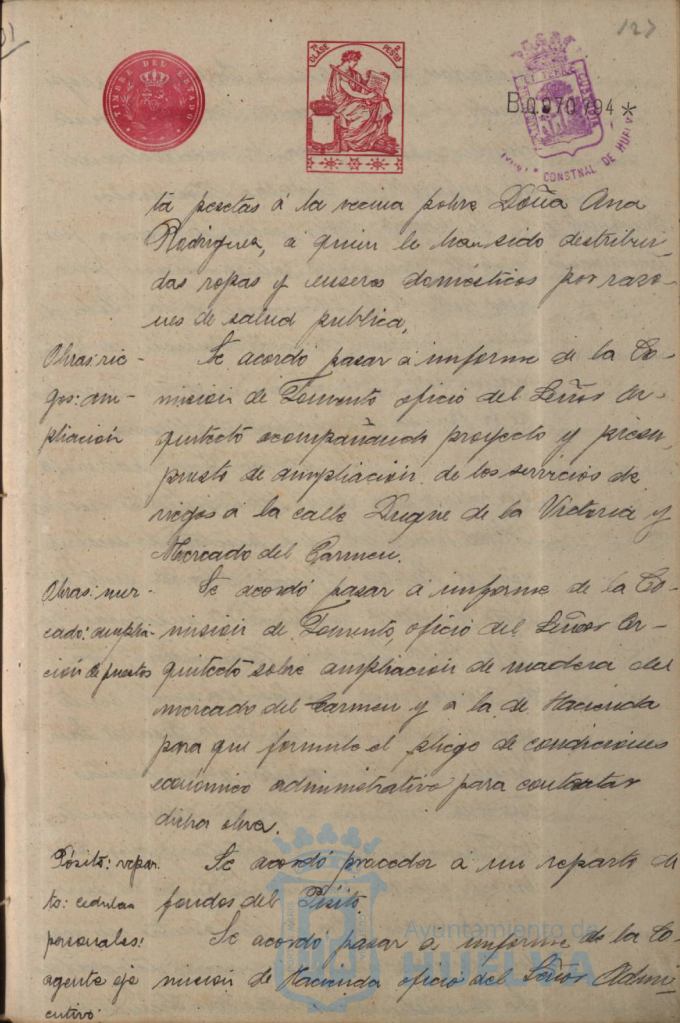 127
TIMBRE DEL ESTADO
7ª CLASE
PESTAS
B.0.970.794*
CONSTNAL DE HUELVA
ta pesetas á la vecina pobre Doña Ana
Rodriguez, á quien le han sido destribui-
das ropas y enseres domésticos por razo-
nes de salud publica,
Obras: rie-
gos: am-
pliación
Se acordó pasar á informe de la Co-
misión de Fomento oficio del Señor Ar-
quitecto acompañando proyecto y presu-
puesto de ampliación de los servicios de
riegos á la calle Duque de la Victoria y
Mercado del Carmen.
Obras: mer-
cado: amplia-
ción de puestos
Se acordó pasar á informe de la Co-
misión de Fomento, oficio del Señor Ar-
quitecto sobre ampliación de madera del
mercado del Carmen y á la de Hacienda
para que formule el pliego de condiciones
económico administrativo para contratar
dicha obra.
Pósito: repar-
to: cedulas
personales:
agente eje
cutivo:
Se acordó proceder á un reparto de
fondos del Pósito
Se acordó pasar á informe de la Co-
misión de Hacienda oficio del Señor Admi
Ayuntamiento de
HUELVA